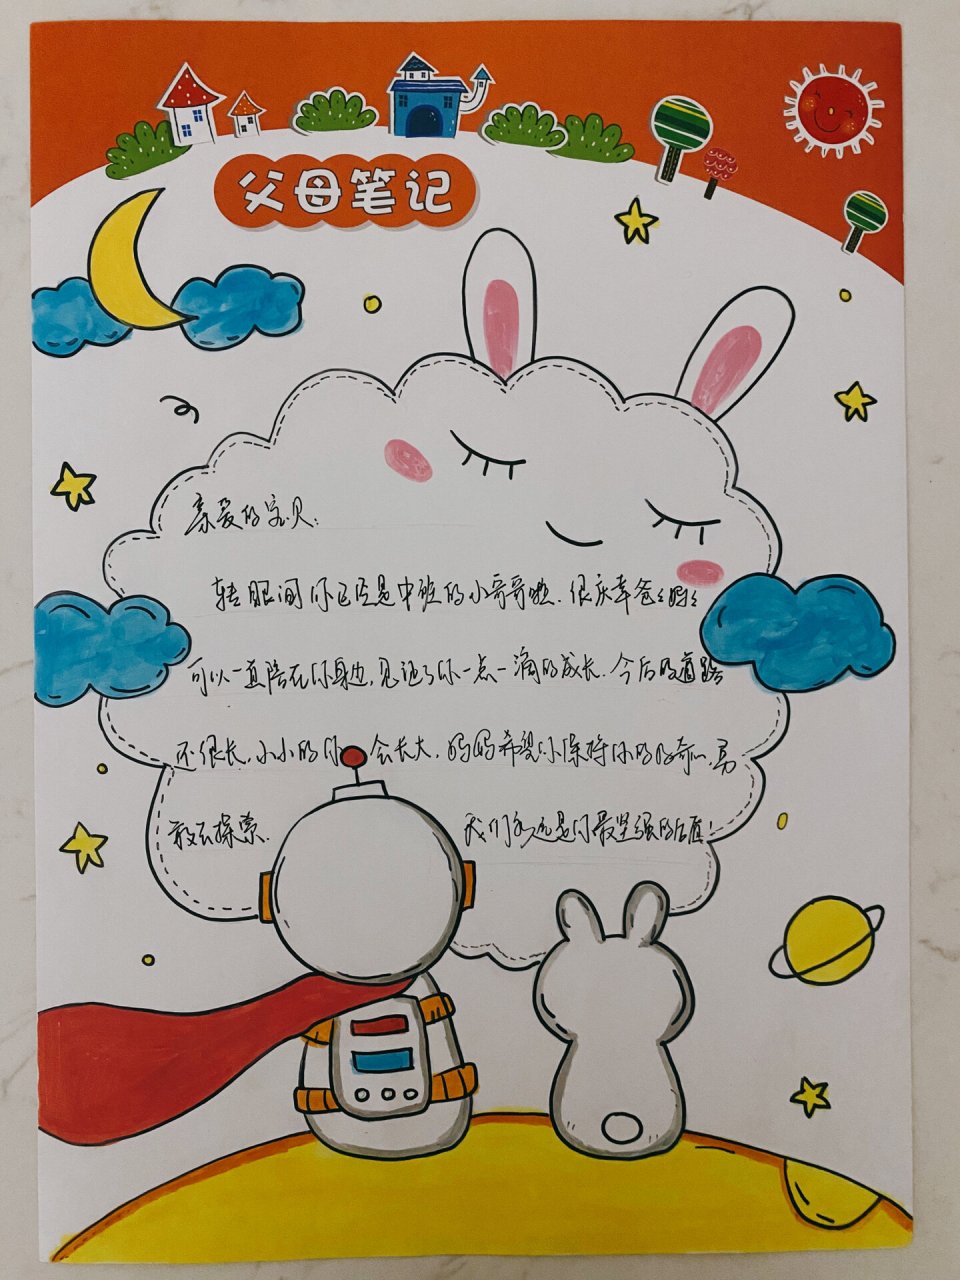 父母笔记
亲爱的宝贝：
转眼间你已经是中班的小哥哥啦．很庆幸爸爸妈妈
可以一直陪在你身边，见证了你一点一滴的成长．今后的道路
还很长，小小的你 会长大，妈妈希望你保持你的好奇心，勇
敢去探索． 我们永远是你最坚强的后盾！